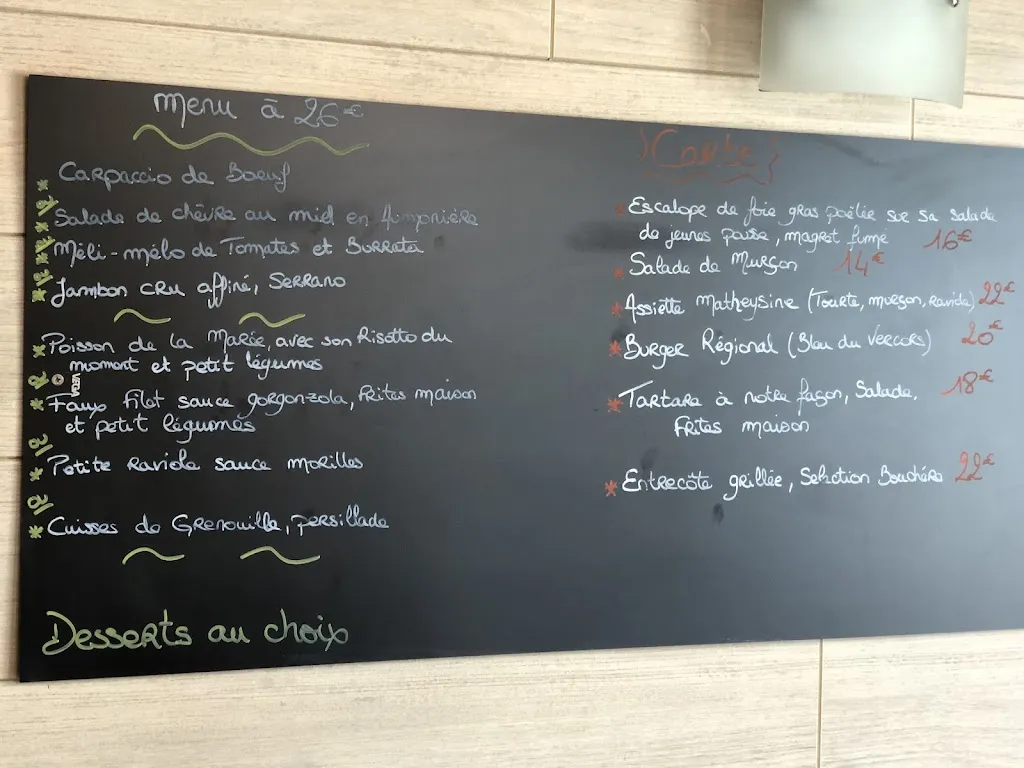 Menu à 26€
Carpaccio de Boeuf
Salade de chèvre au miel en Aumonière
Méli-mélo de Tomates et Burrata
Jambon cru affiné, Serrano
Poisson de la Marée, avec son Risotto du
moment et petit légumes
Faux filet sauce gorgonzola, frites maison
et petit légumes
Petite Raviole sauce morilles
Cuisses de Grenouille, persillade
Desserts au choix
Carte
Escalope de foie gras poêlée sur sa salade
de jeunes pousse, magret fumé 16€
Salade de Murçon 14€
Assiette Matheysine (Tourte, murçon, Raviole) 22€
Burger Régional (Bleu du Vercors) 20€
Tartare à notre façon, Salade, 18€
Frites maison
Entrecôte grillée, Sélection Bouchère 22€